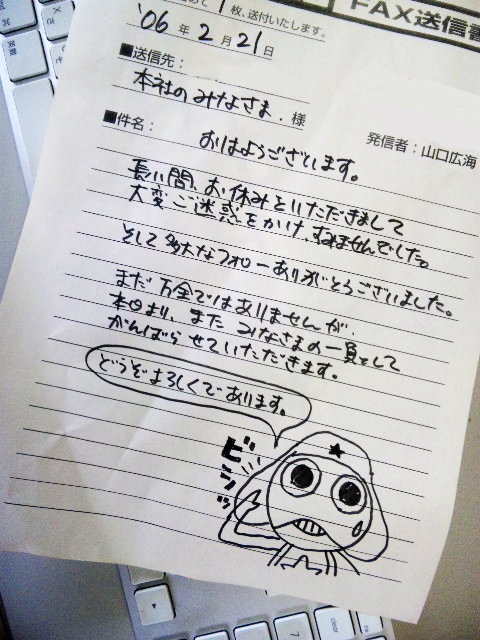 FAX送信書
1枚、送付いたします。
'06年2月21日
■送信先：
本社のみなさま．様
発信者：山口広海
■件名：
おはようございます。
長い間、お休みをいただきまして
大変ご迷惑をかけ、すみませんでした。
そして多大なフォローありがとうございました。
まだ万全ではありませんが、
本日より、また みなさまの一員として
がんばらせていただきます。
どうぞよろしくであります。
ビシッ